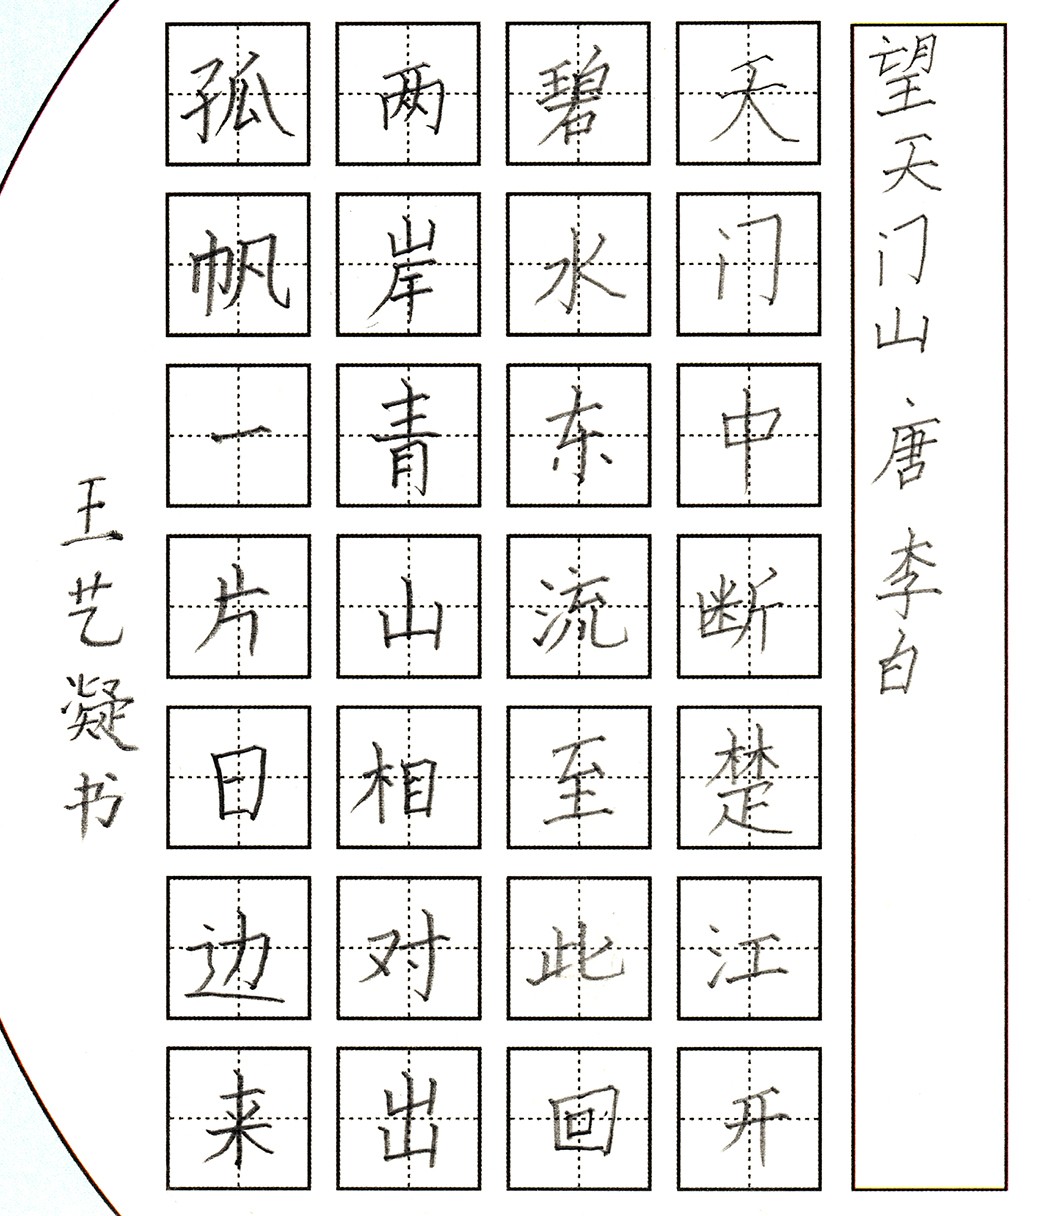 望天门山 唐 李白
天门中断楚江开
碧水东流至此回
两岸青山相对出
孤帆一片日边来
王艺凝书